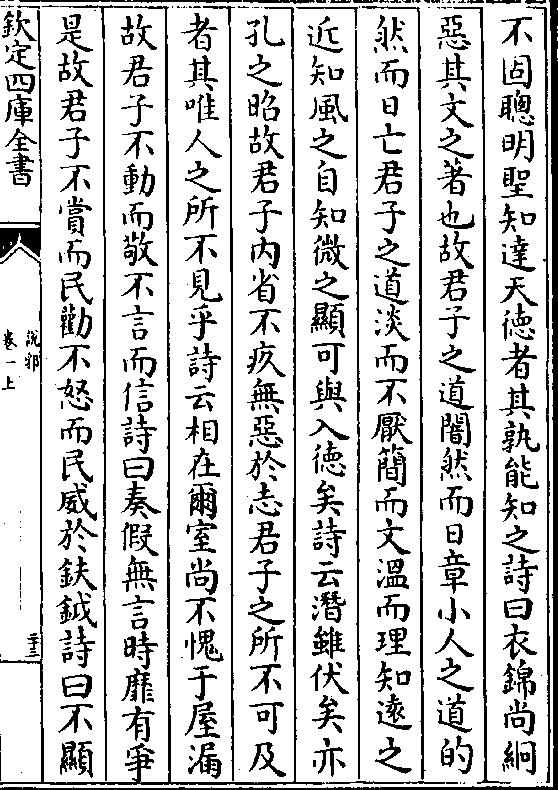 不固聰明聖知達天徳者其孰能知之詩曰衣錦尚絅
惡其文之著也故君子之道闇然而日章小人之道的
然而日亡君子之道淡而不厭簡而文温而理知逺之
近知風之自知微之顯可與入徳矣詩云潛雖伏矣亦
孔之昭故君子内省不疚無惡於志君子之所不可及
者其唯人之所不見乎詩云相在爾室尚不愧于屋漏
故君子不動而敬不言而信詩曰奏假無言時靡有爭
是故君子不賞而民勸不怒而民威於鈇鉞詩曰不顯
欽定四庫全書
説郛
卷一上
二十三